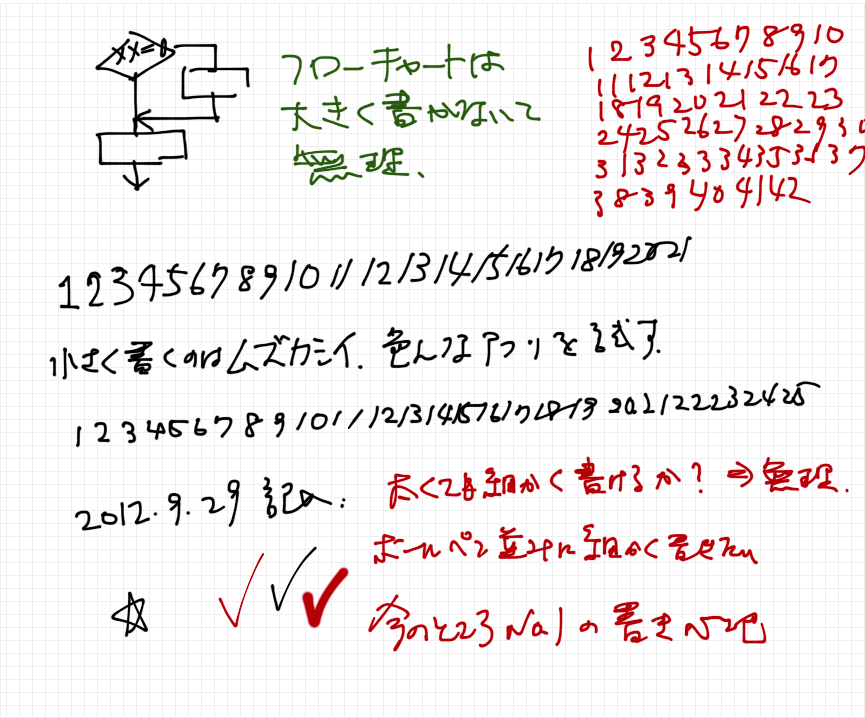 XX=0
フローチャートは
大きく書かないと
無理.
1 2 3 4 5 6 7 8 9 10
11 12 13 14 15 16 17
18 19 20 21 22 23
24 25 26 27 28 29 30
31 32 33 34 35 36 37
38 39 40 41 42
1 2 3 4 5 6 7 8 9 10 11 12 13 14 15 16 17 18 19 20 21
小さく書くのはムズカシイ. 色んなアプリを試す.
1 2 3 4 5 6 7 8 9 10 11 12 13 14 15 16 17 18 19 20 21 22 23 24 25
2012.9.29 記入.
太くても細かく書けるか? ⇒ 無理.
ボールペン並みに細かく書きたい
今のところ No1 の書き心地